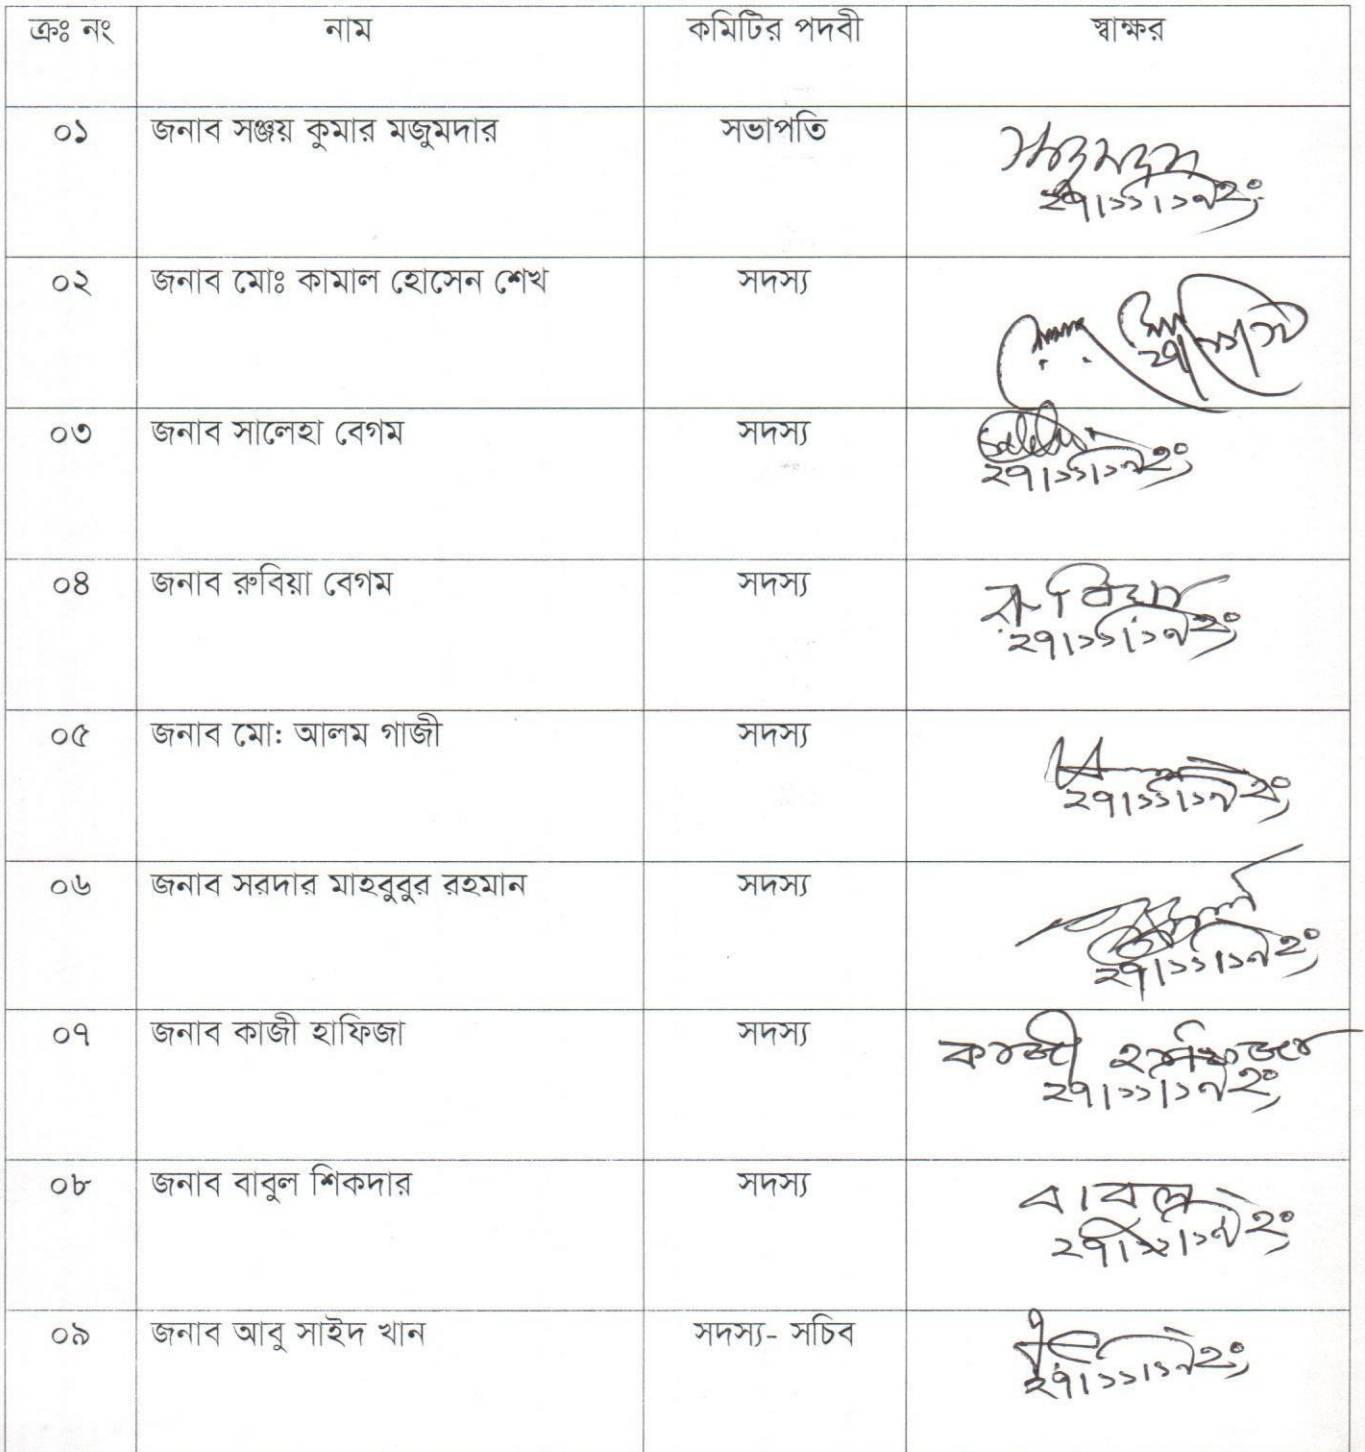 ক্রঃ নং নাম কমিটির পদবী স্বাক্ষর
০১ জনাব সঞ্জয় কুমার মজুমদার সভাপতি
২৭।১১।১৭ইং
০২ জনাব মোঃ কামাল হোসেন শেখ সদস্য
০৩ জনাব সালেহা বেগম সদস্য
২৭।১১।১৭ইং
০৪ জনাব রুবিয়া বেগম সদস্য রুবিয়া
২৭।১১।১৭ইং
০৫ জনাব মো: আলম গাজী সদস্য
২৭।১১।১৭ইং
০৬ জনাব সরদার মাহবুবুর রহমান সদস্য
২৭।১১।১৭ইং
০৭ জনাব কাজী হাফিজা সদস্য কাজী হাফিজা
২৭।১১।১৭ইং
০৮ জনাব বাবুল শিকদার সদস্য বাবুল
২৭।১১।১৭ইং
০৯ জনাব আবু সাইদ খান সদস্য- সচিব
২৭।১১।১৭ইং